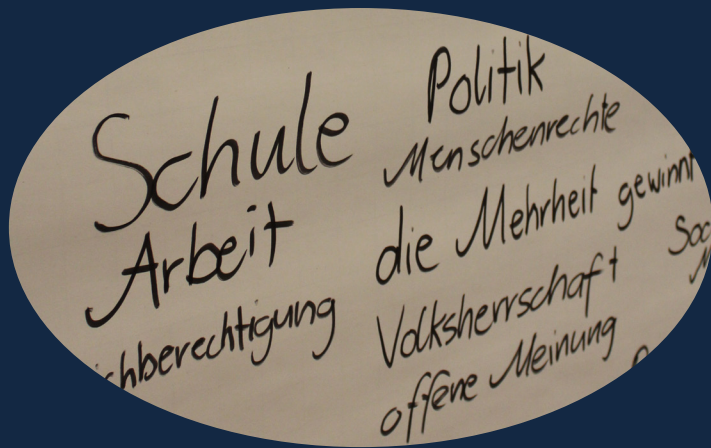 Schule
Arbeit
Politik
Menschenrechte
die Mehrheit gewinnt
Volksherrschaft
offene Meinung